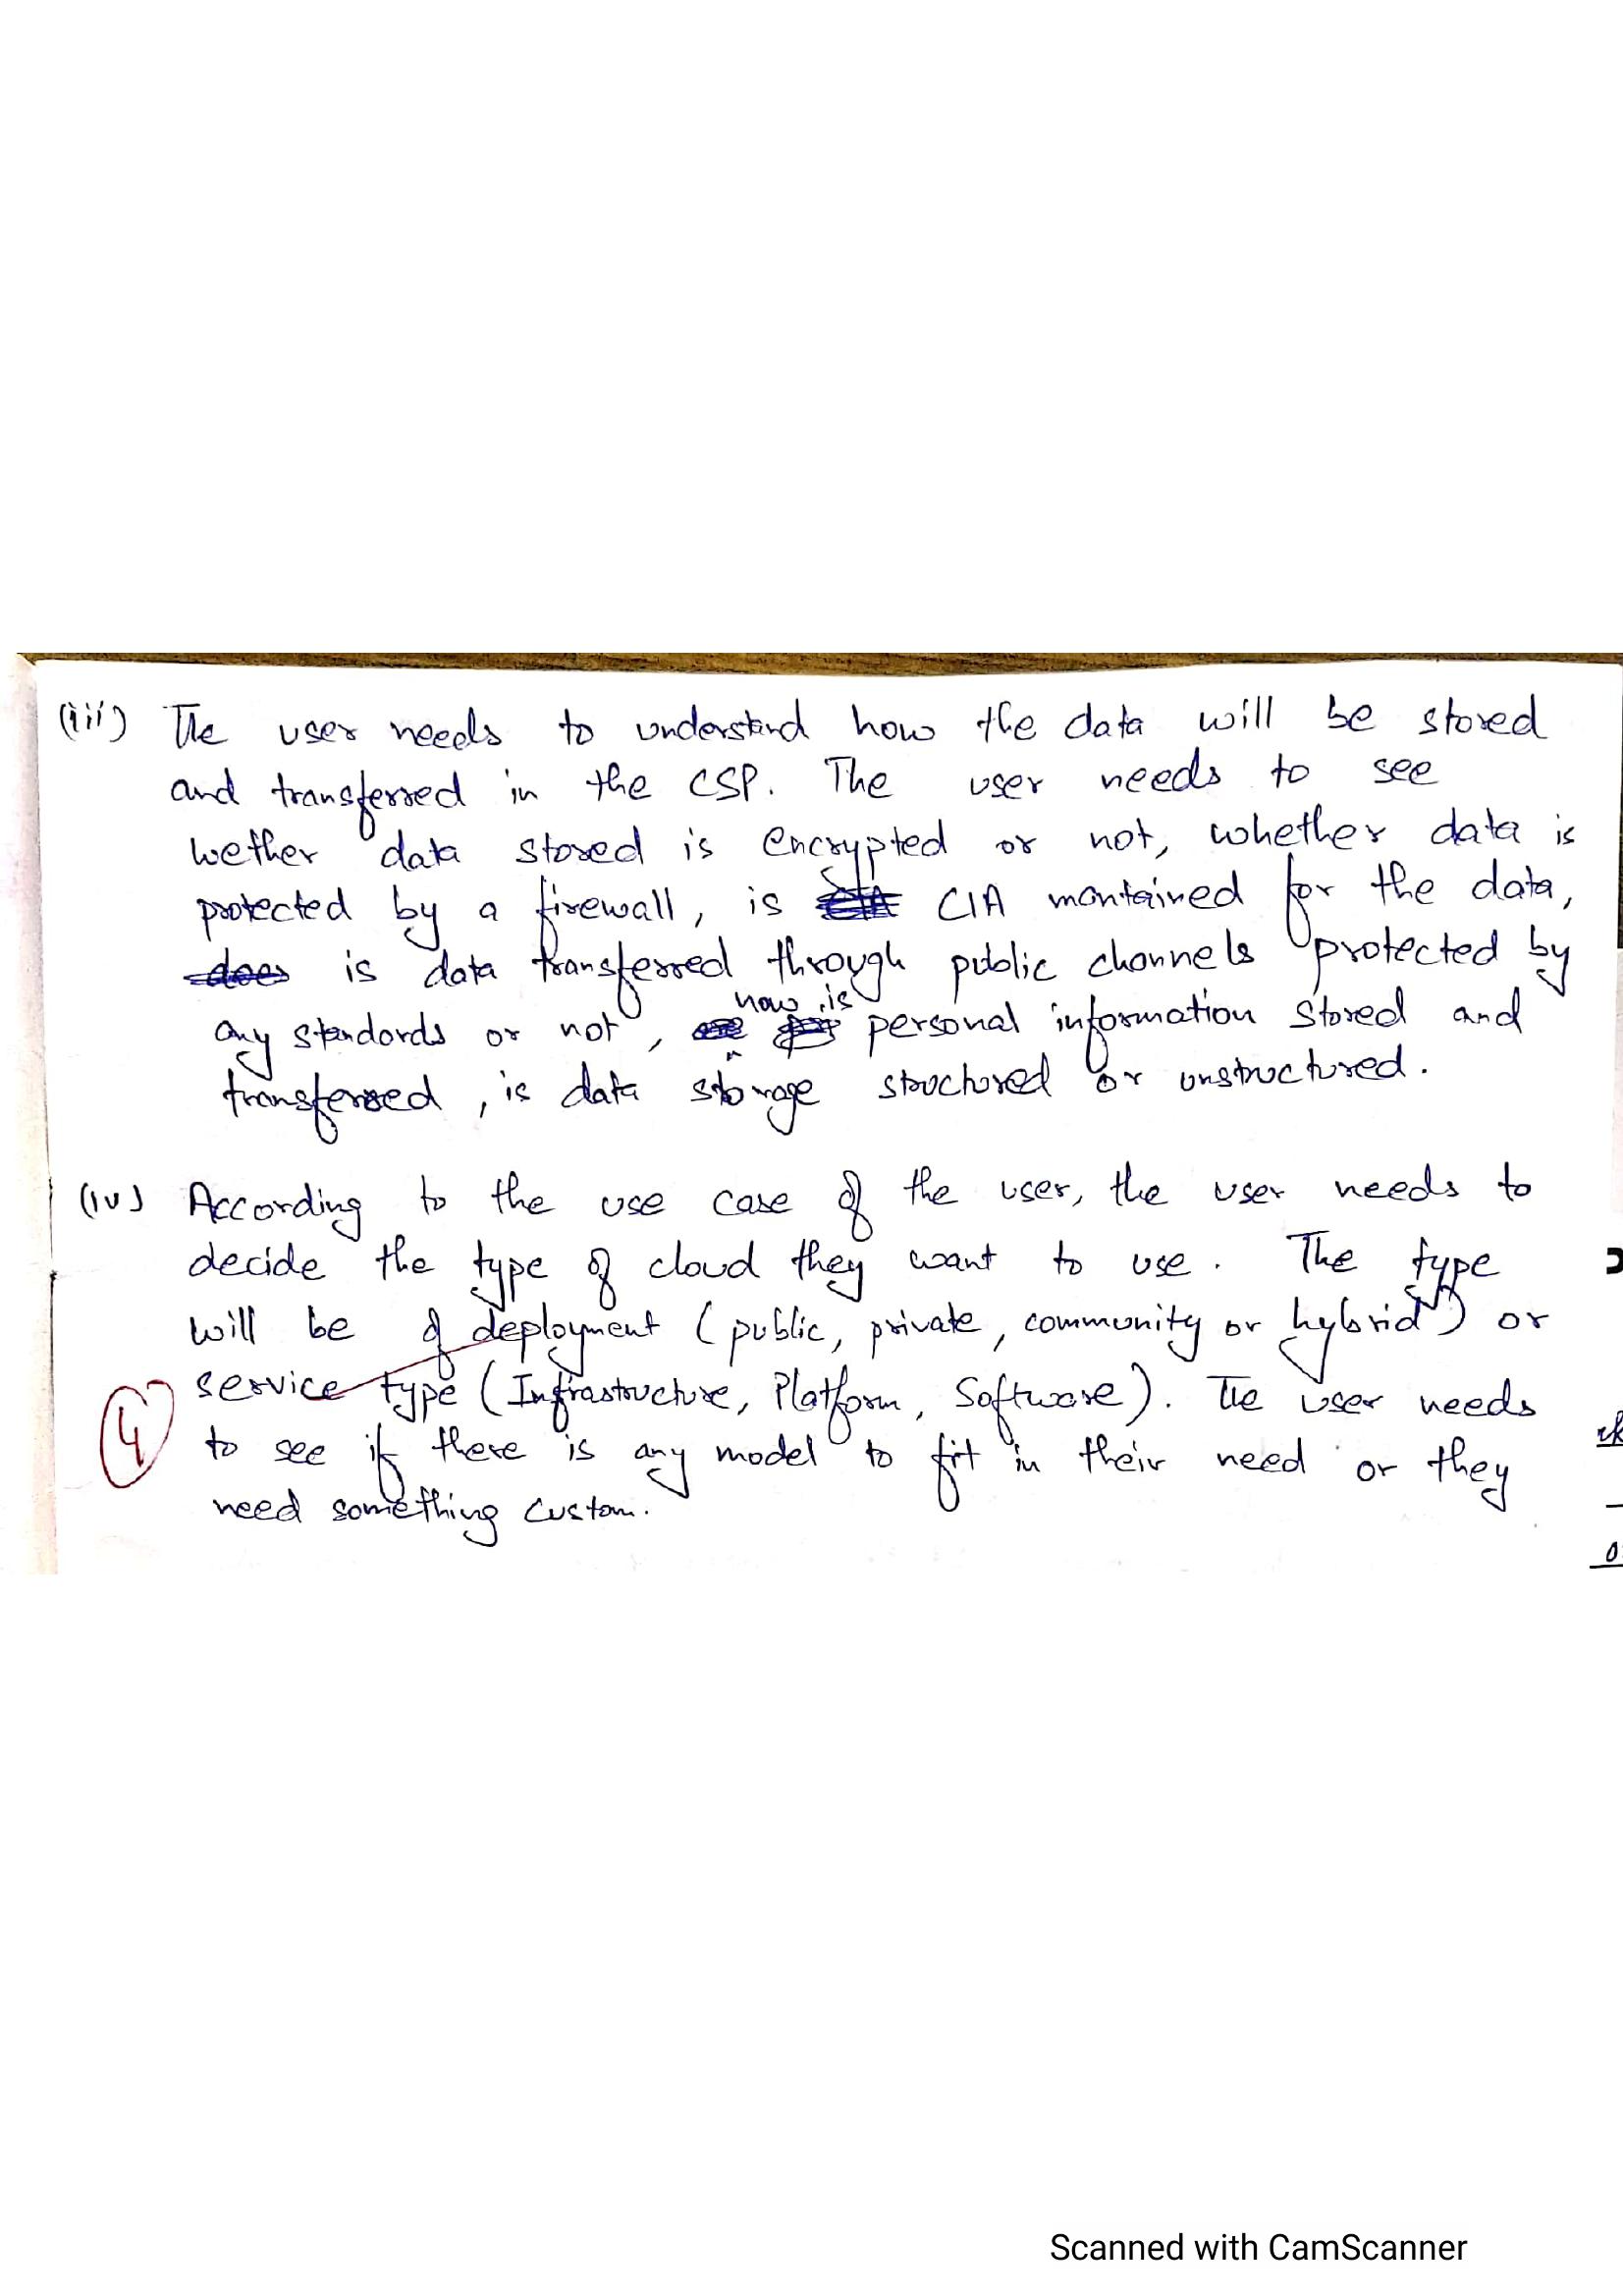 (iii) The user needs to understand how the data will be stored
and transferred in the CSP. The user needs to see
wether data stored is encrypted or not, whether data is
protected by a firewall, is CIA mantained for the data,
does is data transferred through public channels protected by
any standards or not, how is personal information stored and
transferred, is data storage structured or unstructured.
(iv) According to the use case of the user, the user needs to
decide the type of cloud they want to use. The type
will be of deployment (public, private, community or hybrid) or
service type (Infrastructure, Platform, Software). The user needs
4
to see if there is any model to fit in their need or they
need something custom.
Scanned with CamScanner